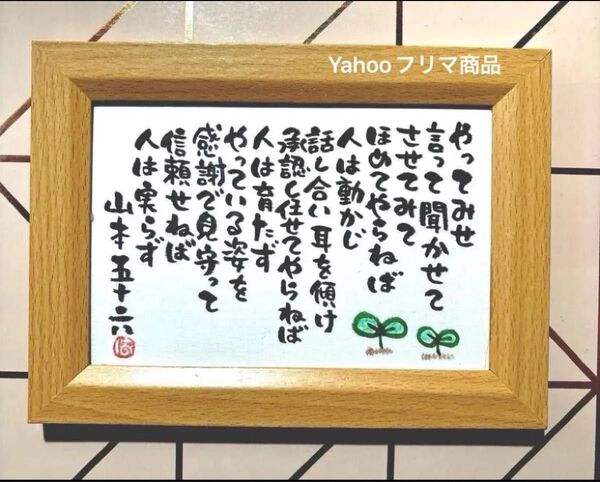 Yahooフリマ商品
やってみせ
言って聞かせて
させてみて
ほめてやらねば
人は動かじ
話し合い耳を傾け
承認し任せてやらねば
人は育たず
やっている姿を
感謝で見守って
信頼せねば
人は実らず
山本五十六